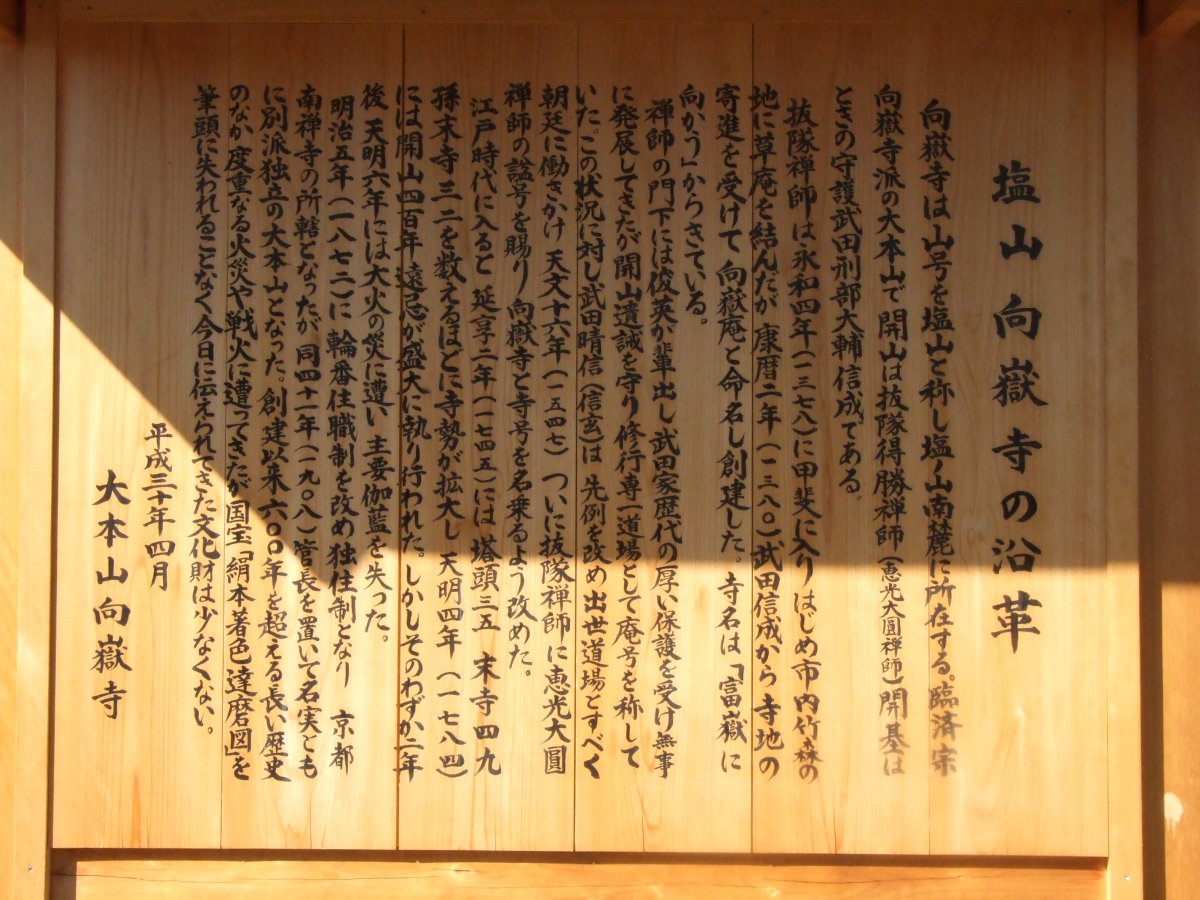 塩山向嶽寺の沿革
向嶽寺は山号を塩山と称し塩ノ山南麓に所在する。臨済宗
向嶽寺派の大本山で開山は抜隊得勝禅師(恵光大圓禅師)開基は
ときの守護武田刑部大輔信成である。
抜隊禅師は永和四年(一三七八)に甲斐に入りはじめ市内竹森の
地に草庵を結んだが 康暦二年(一三八〇)武田信成から 寺地の
寄進を受けて 向嶽庵と命名し創建した。寺名は「富嶽に
向かう」からきている。
禅師の門下には俊英が輩出し 武田家歴代の厚い保護を受け 無事
に発展してきたが開山遺誡を守り修行専一道場として庵号を称して
いた。この状況に対し武田晴信(信玄)は 先例を改め出世道場とすべく
朝廷に働きかけ 天文十六年(一五四七) ついに抜隊禅師に恵光大圓
禅師の諡号を賜り 向嶽寺と寺号を名乗るよう改めた。
江戸時代に入ると 延享二年(一七四五)には 塔頭三五 末寺四九
孫末寺三二を数えるほどに寺勢が拡大し 天明四年(一七八四)
には開山四百年遠忌が盛大に執り行われた。しかしそのわずか二年
後 天明六年には大火の災に遭い 主要伽藍を失った。
明治五年(一八七二)に 輪番住職制を改め独住制となり 京都
南禅寺の所轄となったが 同四十一年(一九〇八)管長を置いて名実とも
に別派独立の大本山となった。創建以来六〇〇年を超える長い歴史
のなか 度重なる火災や戦火に遭ってきたが国宝「絹本著色達磨図」を
筆頭に失われることなく今日に伝えられてきた文化財は少なくない。
平成三十年四月
大本山向嶽寺